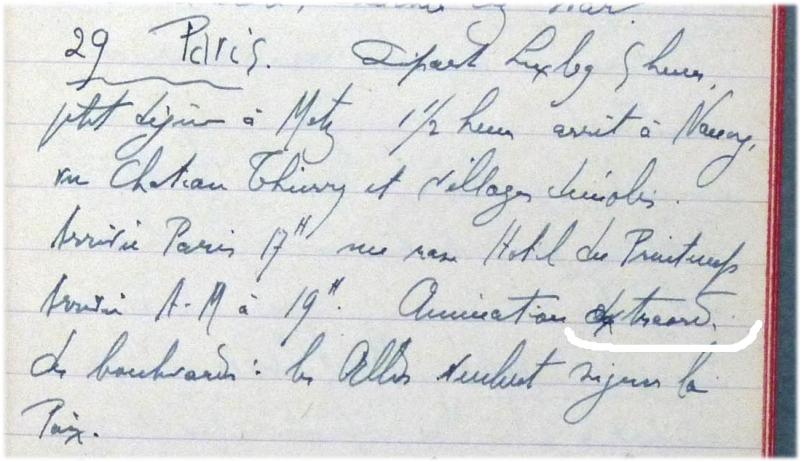 29 Paris. Départ Luxbg 5 heures,
ptit déjeun à Metz 1 1/2 heure arrêt à Nancy,
vu Chateau Thierry et villages démolis.
Arrivée Paris 17 H Hotel du Printemps
Arrivée A-M à 19 H. Animation extraord.
des boulevards : les Allds veulent signer la
Paix.